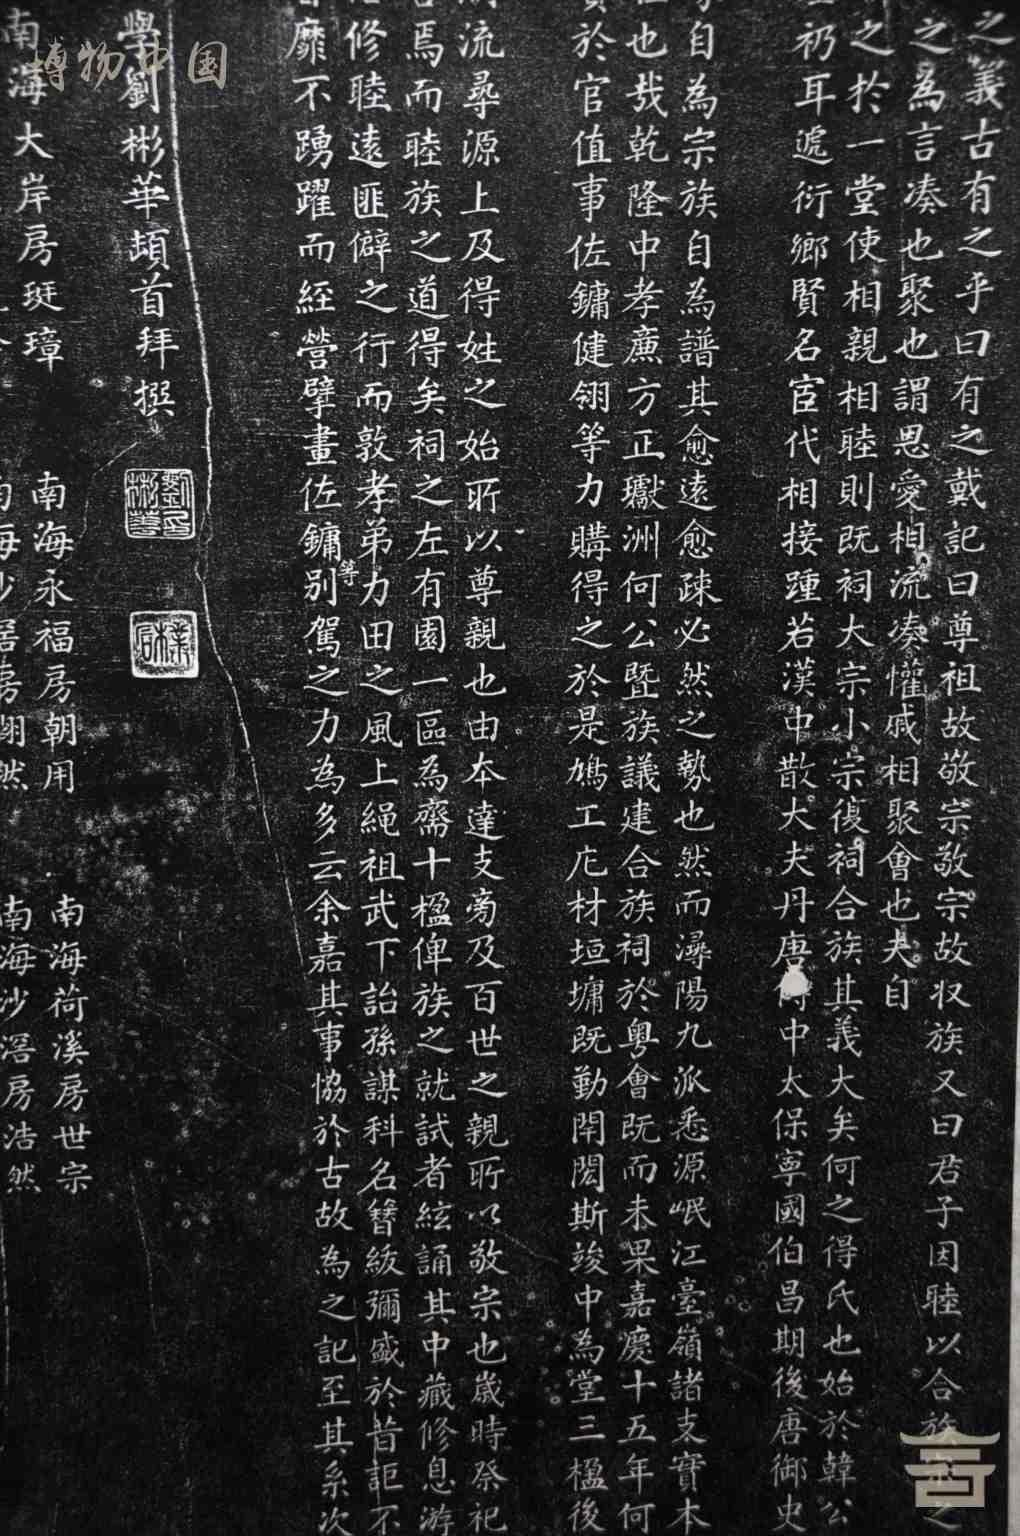 之義古有之乎曰有之戴記曰尊祖故敬宗敬宗故収族又曰君子因睦以合族
之為言凑也聚也謂恩愛相流凑懽戚相聚會也夫自
之於一堂使相親相睦則既祠大宗小宗復祠合族其義大矣何之得氏也始於韓公
礽耳遞衍鄉賢名宦代相接踵若漢中散大夫丹唐 中太保寧國伯昌期後唐御史
自為宗族自為譜其愈遠愈疎必然之勢也然而潯陽九派悉源岷江臺嶺諸支實本
也哉乾隆中孝廉方正𤩽洲何公暨族議建合族祠於粵會既而未果嘉慶十五年何
於官值事佐鏞健翎等力購得之於是鳩工庀材垣墉既勤閈閎斯竣中為堂三楹後
流尋源上及得姓之始所以尊親也由夲達支旁及百世之親所以敬宗也歲時祭祀
焉而睦族之道得矣祠之左有園一區為齋十楹俾族之就試者絃誦其中藏修息游
修睦遠匪僻之行而敦孝弟力田之風上繩祖武下詒孫謀科名簪紱彌盛於昔詎不
靡不踴躍而經營擘畫佐鏞等別駕之力為多云余嘉其事恊於古故為之記至其系次
學劉彬華頓首拜撰
劉彬華印
南海大岸房珽璋 南海永福房朝用 南海荷溪房世宗
南海沙 房翊然 南海沙滘房浩然
博物中国